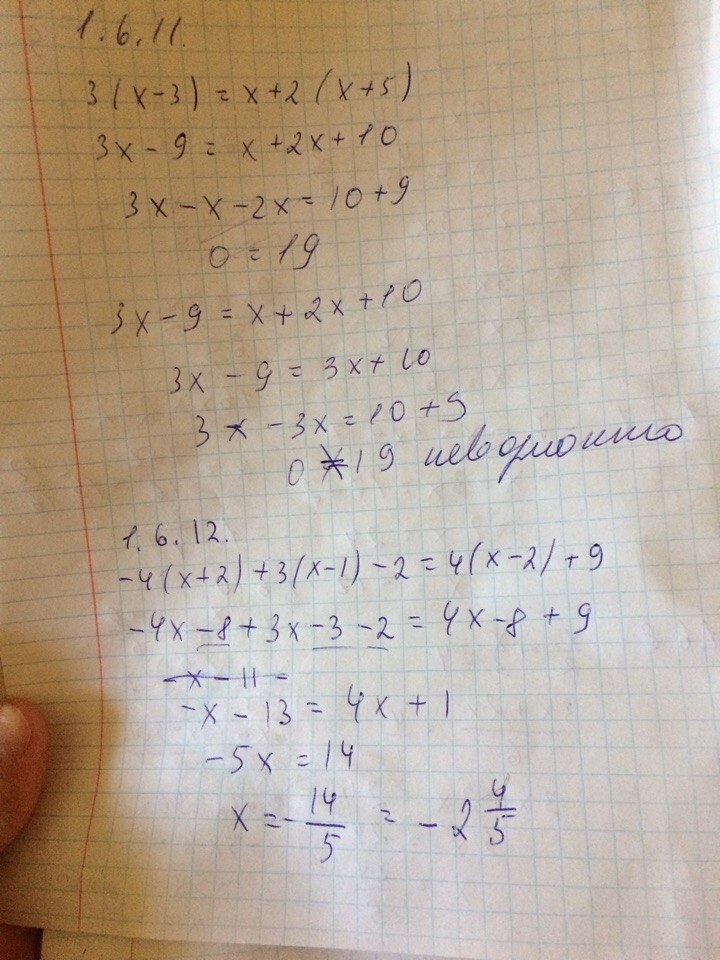 1.6.11.
3(x-3) = x+2(x+5)
3x - 9 = x+2x+10
3x-x-2x=10+9
0 = 19
3x-9 = x+2x+10
3x - 9 = 3x+10
3x - 3x = 10+9
0 ≠ 19
1.6.12.
-4(x+2)+3(x-1)-2=4(x-2)+9
-4x-8+3x-3-2=4x-8+9
-x-11=
-x-13=4x+1
-5x=14
x=-14/5 = -2 4/5